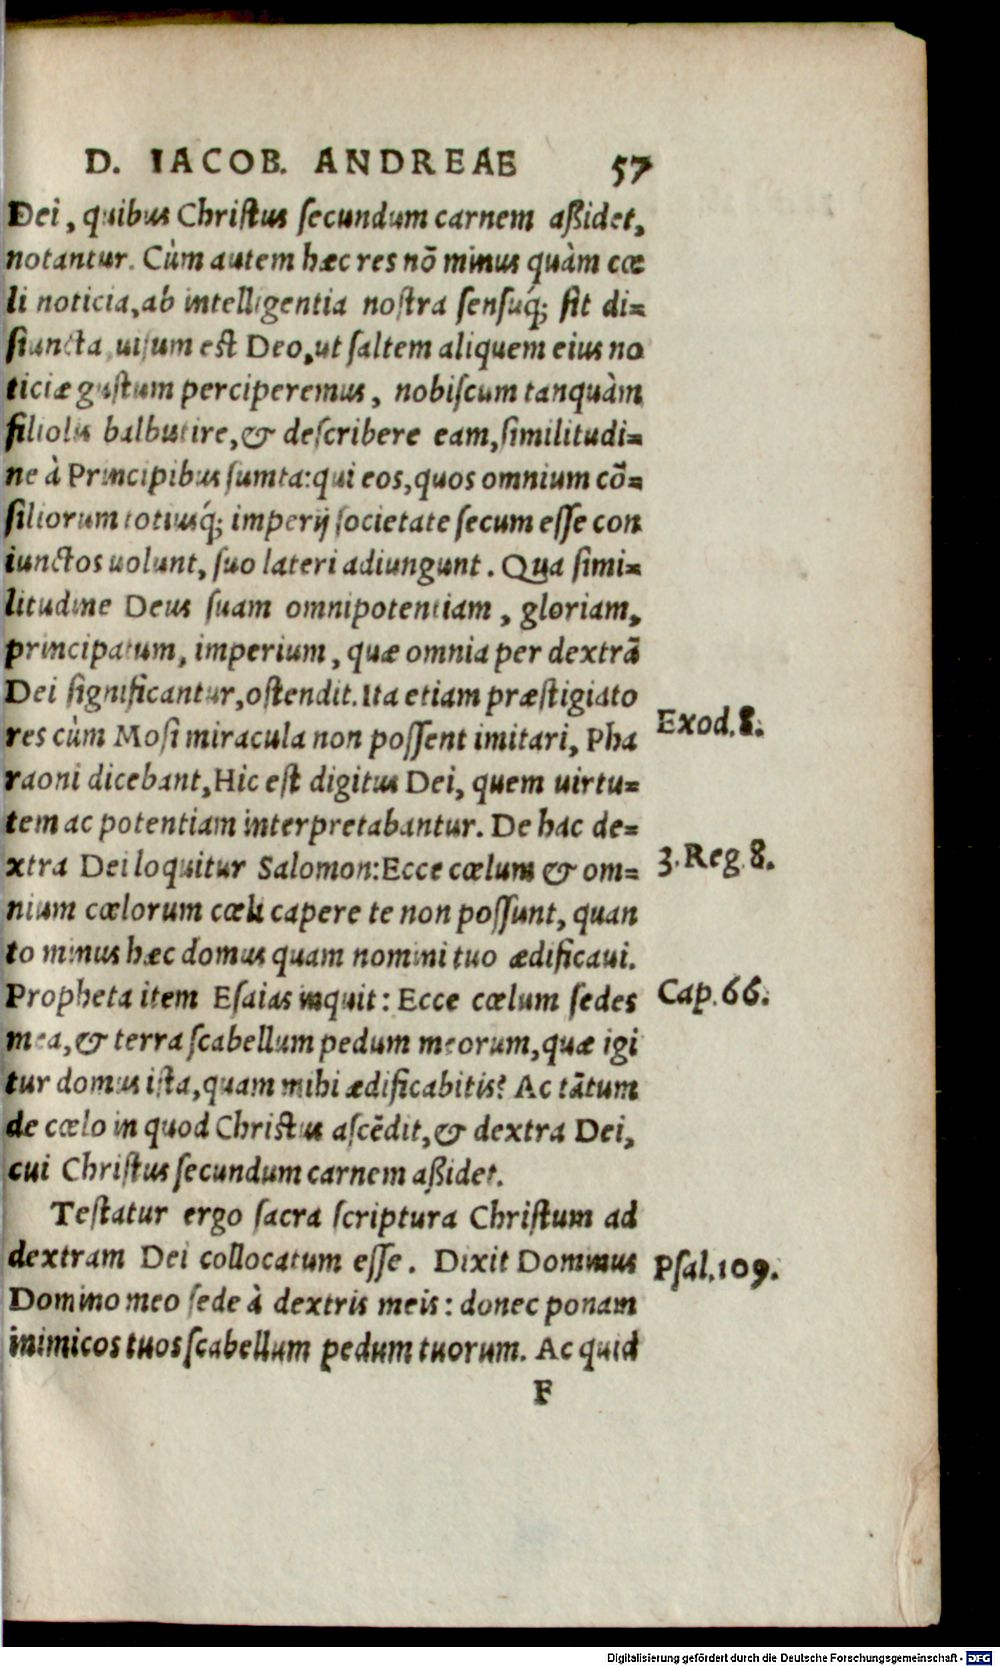 D. IACOB. ANDREAE 57
Dei, quibus Christus secundum carnem aßidet,
notantur. Cùm autem hæc res nō minus quàm cœ
li noticia, ab intelligentia nostra sensuq́; sit di-
siuncta, uisum est Deo, ut saltem aliquem eius no
ticiæ gustum perciperemus, nobiscum tanquàm
filiolis balbutire, & describere eam, similitudi-
ne à Principibus sumta: qui eos, quos omnium cō-
siliorum totiusq́; imperij societate secum esse con
iunctos uolunt, suo lateri adiungunt. Qua simi-
litudine Deus suam omnipotentiam, gloriam,
principatum, imperium, quæ omnia per dextrā
Dei significantur, ostendit. Ita etiam præstigiato
res cùm Mosi miracula non possent imitari, Pha
Exod. 8.
raoni dicebant, Hic est digitus Dei, quem uirtu-
tem ac potentiam interpretabantur. De hac de-
xtra Dei loquitur Salomon: Ecce cœlum & om-
3. Reg. 8.
nium cœlorum cœli capere te non possunt, quan
to minus hæc domus quam nomini tuo ædificaui.
Propheta item Esaias inquit: Ecce cœlum sedes
Cap. 66.
mea, & terra scabellum pedum meorum, quæ igi
tur domus ista, quam mihi ædificabitis? Ac tātum
de cœlo in quod Christus ascēdit, & dextra Dei,
cui Christus secundum carnem aßidet.
Testatur ergo sacra scriptura Christum ad
dextram Dei collocatum esse. Dixit Dominus
Psal. 109.
Domino meo sede à dextris meis: donec ponam
inimicos tuos scabellum pedum tuorum. Ac quid
F
Digitalisierung gefördert durch die Deutsche Forschungsgemeinschaft - DFG